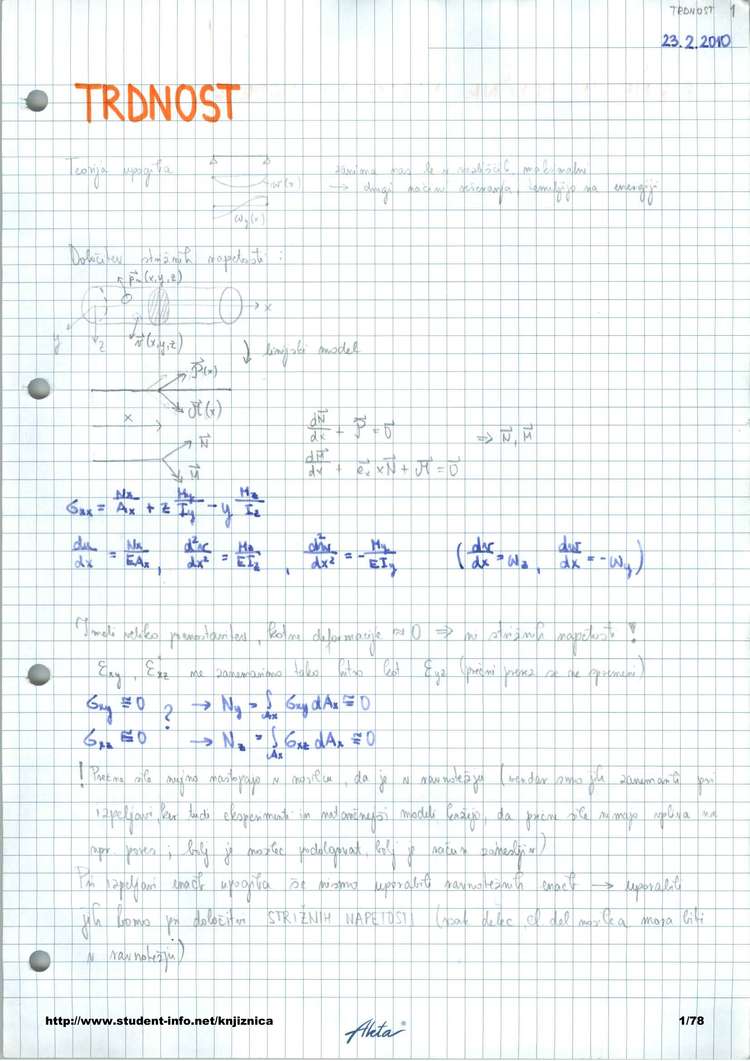 TRDNOST 1
23.2.2010
TRDNOST
Teorija upogiba
w(x)
ω_y(x)
zanima nas le v različih, maksimalni
→ drugi načini reševanja, temeljijo na energiji
Določitev strižnih napetosti:
p⃗_n(x,y,z)
x
y z v⃗(x,y,z)
↓ linijski model
P⃗(x)
M⃗(x)
x
N⃗
M⃗
dN⃗/dx + P⃗ = 0⃗ ⇒ N⃗, M⃗
dM⃗/dx + e⃗_x × N⃗ + M⃗ = 0⃗
σ_xx = N_x/A_x + z M_y/I_y - y M_z/I_z
du/dx = N_x/EA_x , d²v/dx² = M_z/EI_z , d²w/dx² = - M_y/EI_y (dv/dx = ω_z , dw/dx = -ω_y)
Imeli veliko poenostavitev, kotne deformacije ≈ 0 ⇒ ni strižnih napetosti!
ε_xy, ε_xz ne zanemarimo tako hitro kot ε_yz (prečni prerez se ne spremeni)
σ_xy ≅ 0 ? → N_y = ∫_Ax σ_xy dA_x ≅ 0
σ_xz ≅ 0 → N_z = ∫_Ax σ_xz dA_x ≅ 0
! Prečne sile nujno nastopajo v nosilcu, da je v ravnotežju (vendar smo jih zanemarili pri
izpeljavi, ker tudi eksperimenti in natančnejši modeli kažejo, da prečne sile nimajo vpliva na
npr. poves; bolj je nosilec podolgovat, bolj je račun zanesljiv)
Pri izpeljavi enačb upogiba še nismo uporabili ravnotežnih enačb → uporabili
jih bomo pri določitvi STRIŽNIH NAPETOSTI (vsak delec, del nosilca mora biti
v ravnotežju)
http://www.student-info.net/knjiznica
Aleta
1/78